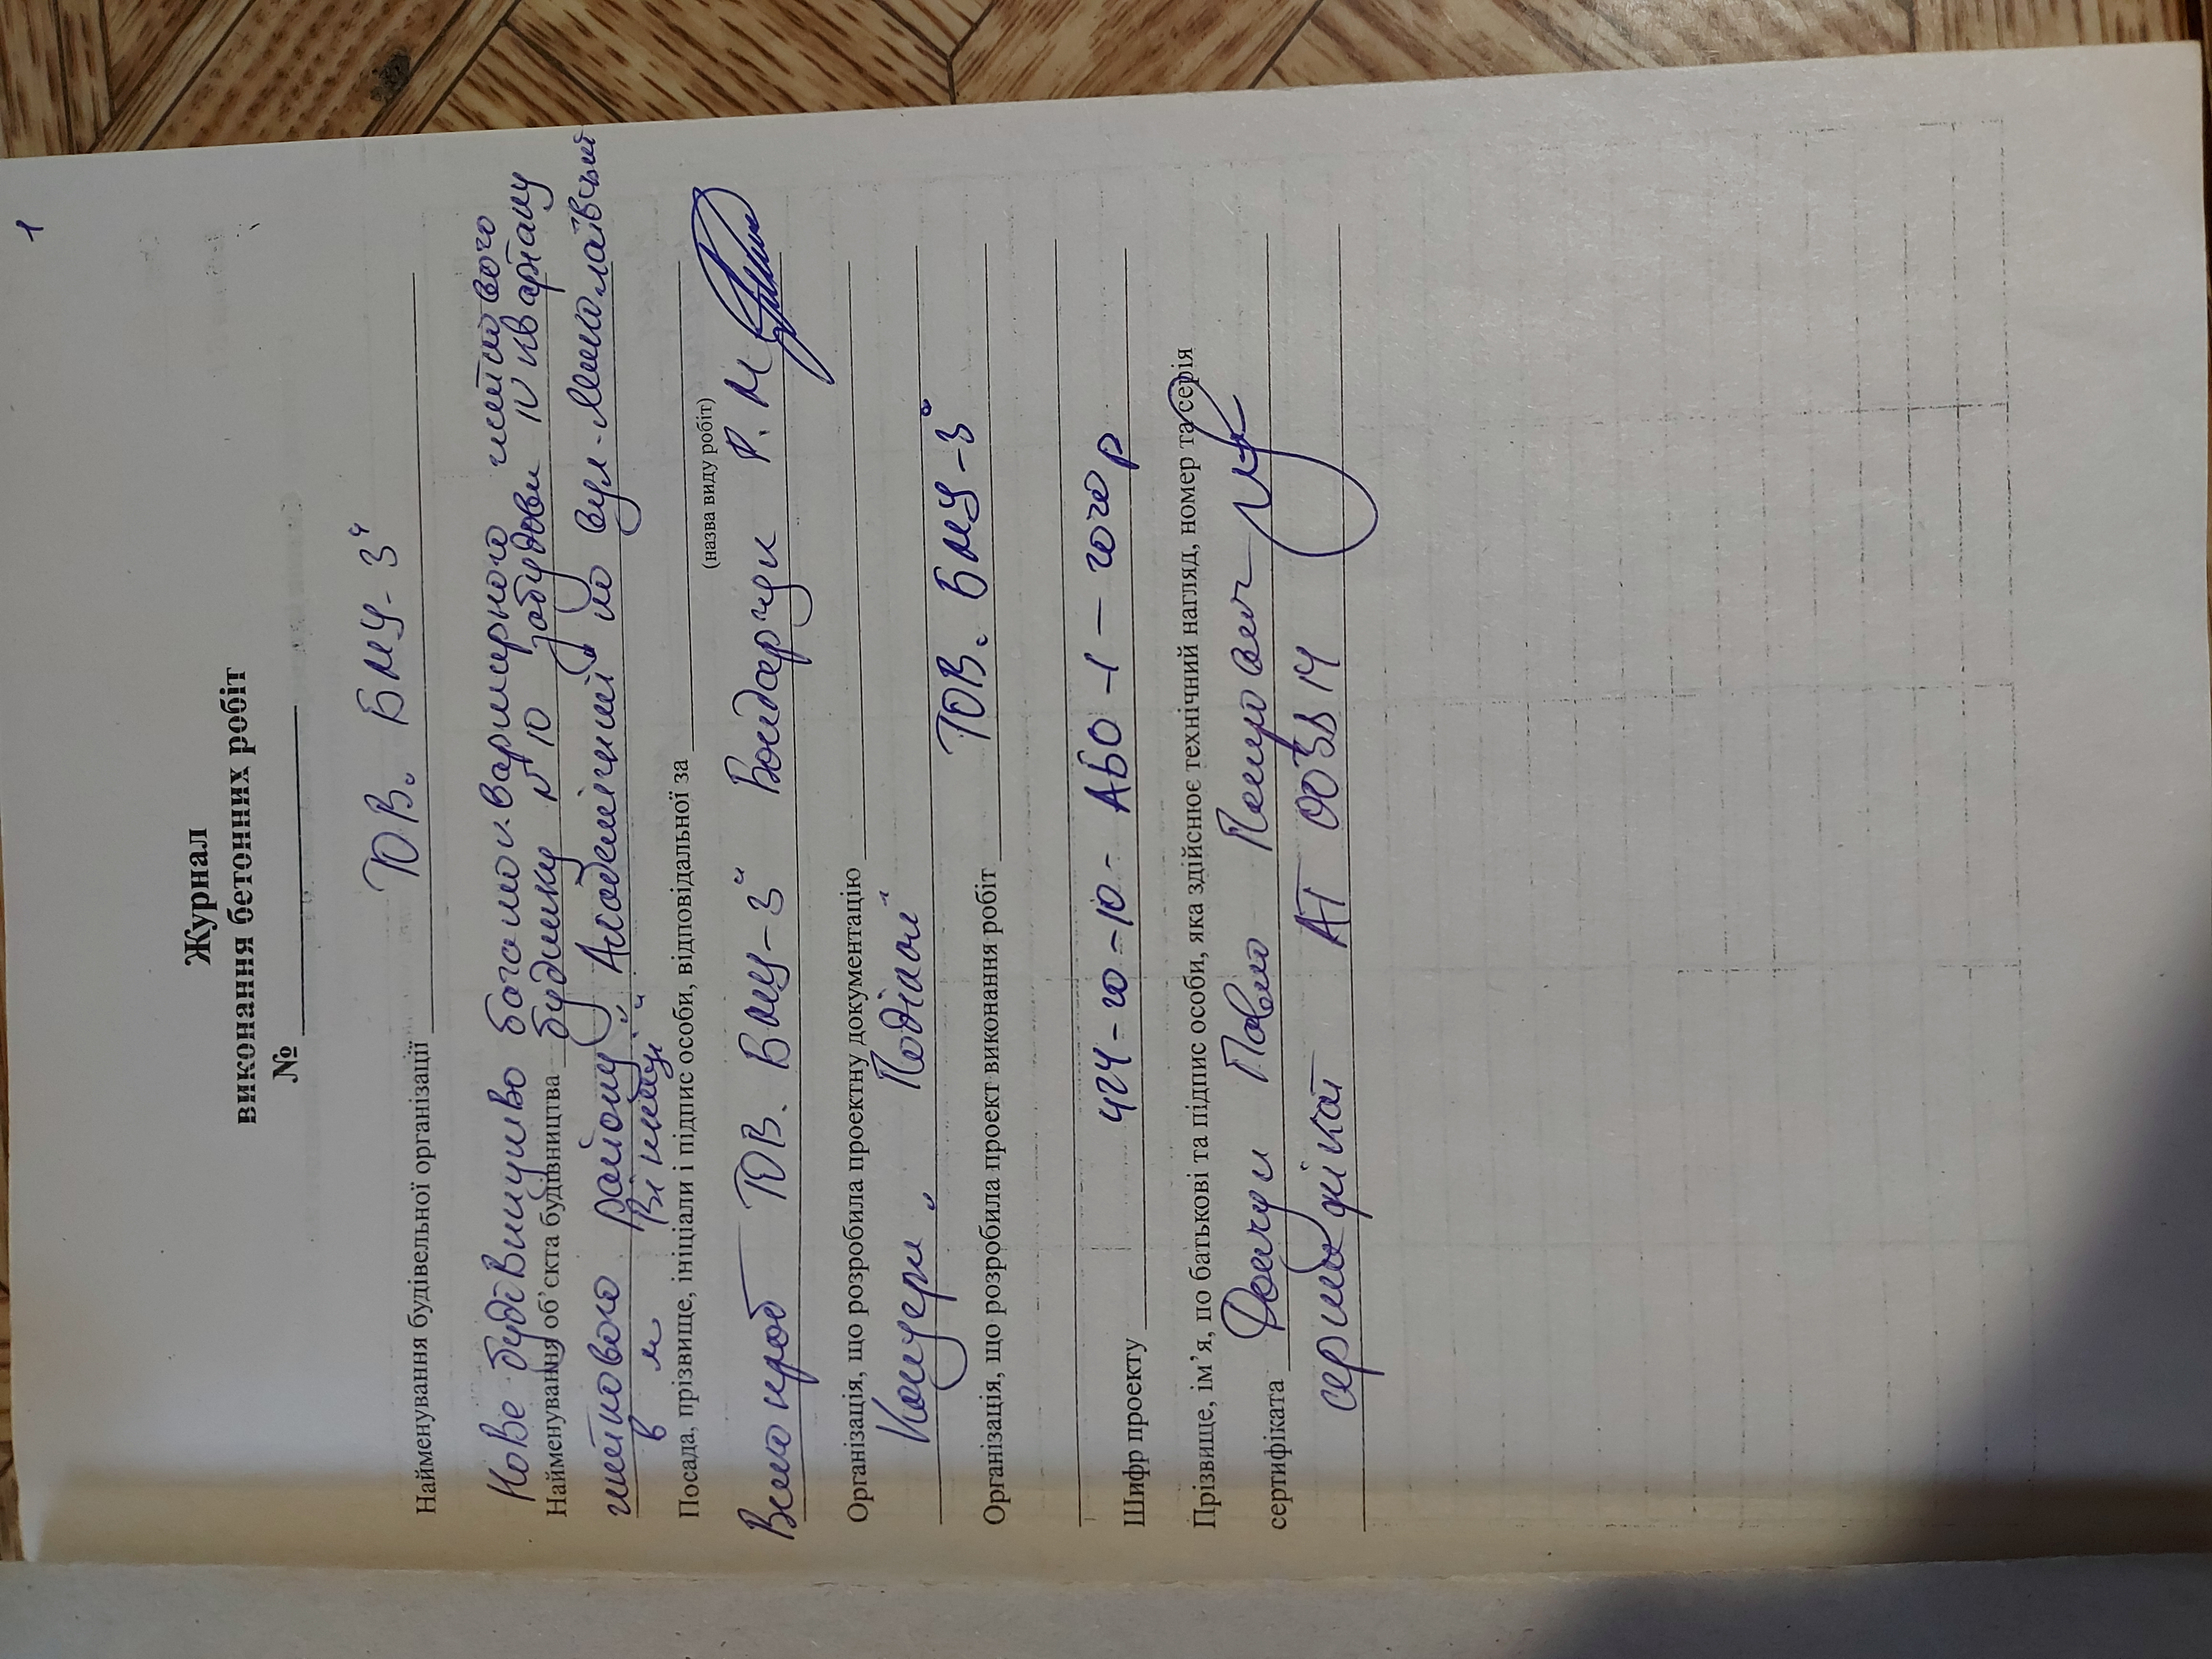 1
Журнал
виконання бетонних робіт
№
Найменування будівельної організації ТОВ „БМУ-3“
Нове будівництво багатоквартирного житлового
Найменування об’єкта будівництва будинку №10 забудови IV кварталу
житлового району „Академічний“ по вул.
в м Вінниці
Посада, прізвище, ініціали і підпис особи, відповідальної за
(назва виду робіт)
Виконроб ТОВ „БМУ-3“ Бондарчук Р. М
Організація, що розробила проектну документацію
Концерн „Поділля“
Організація, що розробила проект виконання робіт ТОВ „БМУ-3“
Шифр проекту 424-20-10-АБО-1-2020р
Прізвище, ім’я, по батькові та підпис особи, яка здійснює технічний нагляд, номер та серія
сертифіката Павло Петрович
сертифікат АТ